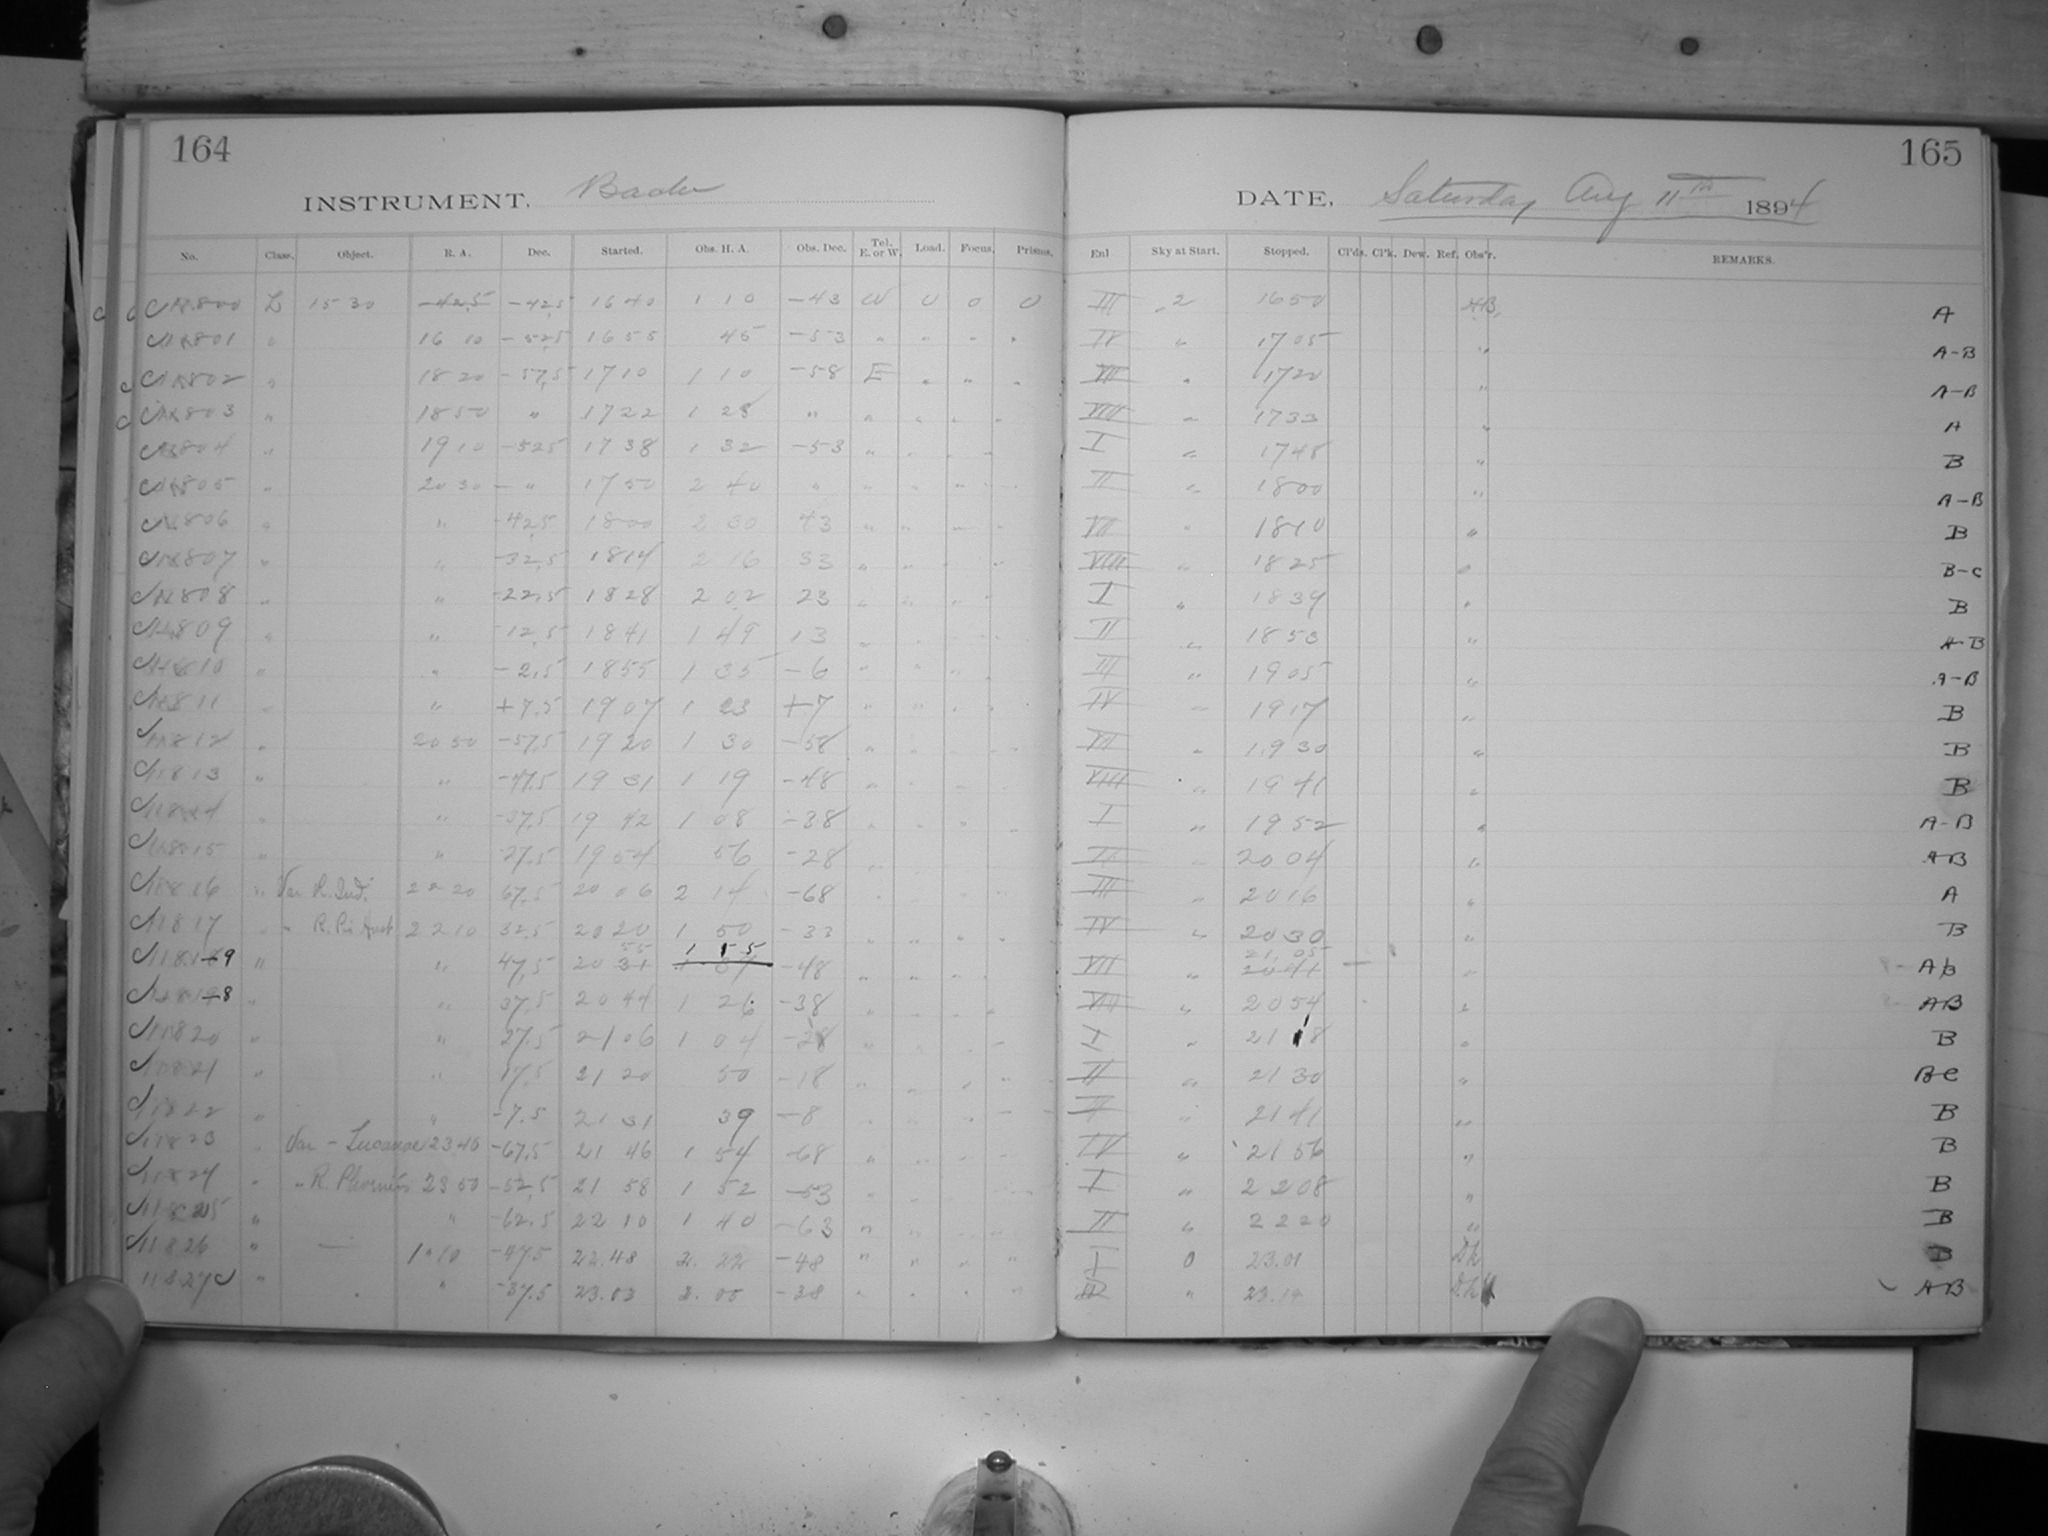 164
165
INSTRUMENT. Bache
DATE, Saturday Aug 11th 1894
No. Class. Object. R. A. Dec. Started. Obs. H. A. Obs. Dec. Tel. E. or W. Load. Focus. Prisms. Enl Sky at Start. Stopped. Cl'ds. Cl'k. Dew. Ref. Obs'r. REMARKS.
800 L 15 30 -42.5 -42.5 1640 1 10 -43 W 0 0 0 III 2 1650 A
801 " 16 10 -52.5 1655 45 -53 " " " " IV " 1705 " A-B
802 " 18 20 -57.5 1710 1 10 -58 E " " " VII " 1720 " A-B
803 " 18 50 " 1722 1 28 " " " " " VIII " 1733 " A
804 " 19 10 -52.5 1738 1 32 -53 " " " " I " 1748 " B
805 " 20 30 - " 1750 2 40 " " " " " II " 1800 " A-B
806 " " -42.5 1800 2 30 43 " " " " VII " 1810 " B
807 " " -32.5 1814 2 16 33 " " " " VIII " 1825 " B-C
808 " " -22.5 1828 2 02 23 " " " " I " 1839 " B
809 " " -12.5 1841 1 49 13 " II " 1853 " A-B
810 " " -2.5 1855 1 35 -6 " " " III " 1905 " A-B
811 " " +7.5 1907 1 23 +7 " " " " IV " 1917 " B
812 " 20 50 -57.5 1920 1 30 -58 " " " " VII " 1930 " B
813 " " -47.5 1931 1 19 -48 " " " " VIII " 1941 " B
814 " " -37.5 19 42 1 08 -38 " " " " I " 1952 " A-B
815 " " 27.5 1954 56 -28 II " 2004 " AB
11816 " Var R. Ind. 22 20 67.5 20 06 2 14 -68 III " 2016 " A
11817 " " R. Pis Aust 22 10 32.5 2020 1 50 -33 " " " " IV " 2030 " B
55 1 15 21 05
9 " " 47.5 20 31 1 37 -48 VII " 2041 " AB
8 " " 37.5 2044 1 26 -38 " " " " VIII " 2054 " AB
11820 " " 27.5 2106 1 04 -28 " I " 2118 " B
11821 " " 17.5 2120 50 -18 " " " " II " 2130 " BC
11822 " " -7.5 2131 39 -8 " 2141 " B
11823 " Var - 23 40 -67.5 21 46 1 54 -68 " IV " 2156 " B
11824 " " R. Phoenicis 23 50 -52.5 21 58 1 52 -53 " I " 2208 " B
11825 " " -62.5 22 10 1 40 -63 " " II " 2220 " B
11826 " — 1 10 -47.5 22.48 2. 22 -48 " " " " I 0 23.01 B
11827 " " -37.5 23.03 2. 05 -38 " " " " " 23.14 AB